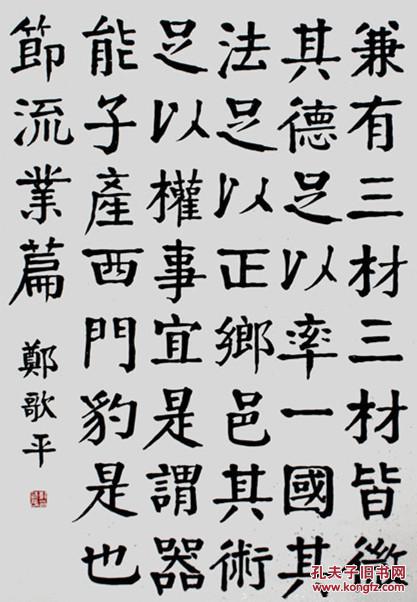 兼有三材三材皆微
其德足以率一國其
法足以正鄉邑其術
足以權事宜是謂器
能子產西門豹是也
節流業篇
鄭歌平
孔夫子旧书网